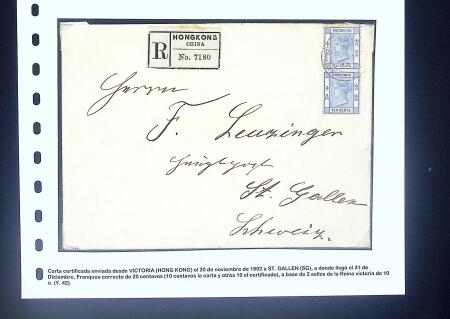 HONGKONG
CHINA
R
No. 7180
HONGKONG
TEN CENTS
Herrn
F. Leuzinger
Hauptpost
St. Gallen
Schweiz.
Carta certificada enviada desde VICTORIA (HONG KONG) el 20 de noviembre de 1902 a ST. GALLEN (SG), a donde llegó el 31 de
Diciembre. Franqueo correcto de 20 centavos (10 centavos la carta y otros 10 el certificado), a base de 2 sellos de la Reina victoria de 10
c. (Y. 42).